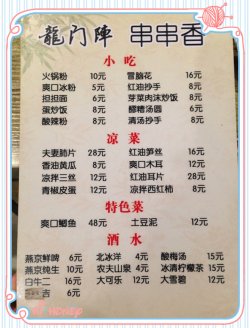 龍门陣 串串香
小吃
火锅粉 10元 冒脑花 16元
爽口冰粉 5元 红油抄手 8元
担担面 6元 芽菜肉沫炒饭 8元
蛋炒饭 8元 醪糟汤圆 6元
酸辣粉 8元 清汤抄手 8元
凉菜
夫妻肺片 28元 红油笋丝 16元
香油黄瓜 8元 爽口木耳 12元
凉拌三丝 12元 红油耳片 28元
青椒皮蛋 12元 凉拌西红柿 8元
特色菜
爽口鲫鱼 48元 土豆泥 12元
酒水
燕京鲜啤 6元 北冰洋 4元 酸梅汤 15元
燕京纯生 10元 农夫山泉 4元 冰清柠檬茶 15元
白牛二 16元 大可乐 12元 大雪碧 12元
吉 6元